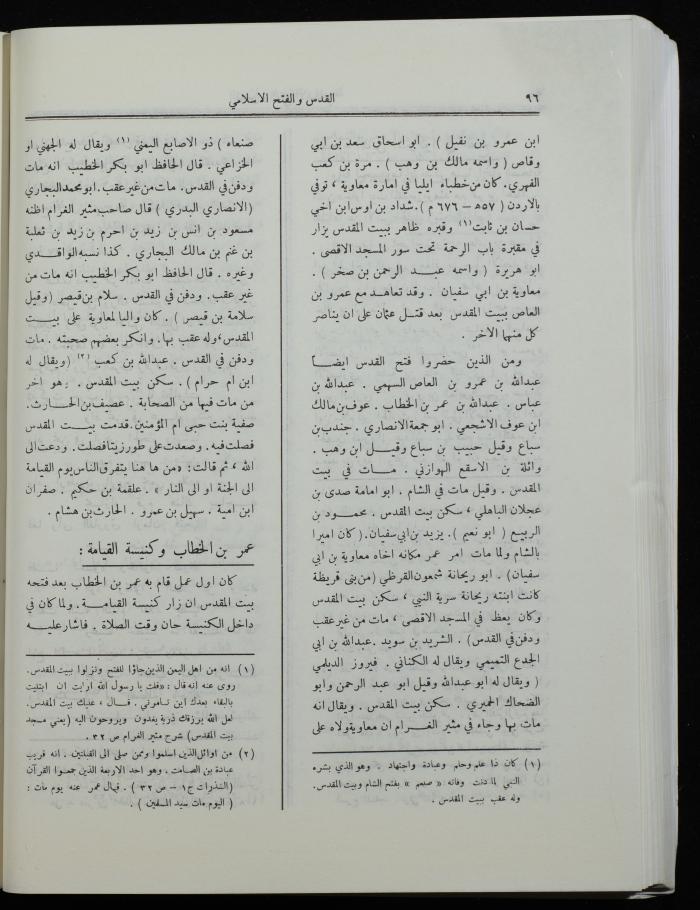 ٩٦
القدس والفتح الاسلامي
ابن عمرو بن نفيل ) . ابو اسحاق سعد بن ابي
وقاص ( واسمه مالك بن وهب ) . مرة بن كعب
الفهري. كان من خطباء ايليا في امارة معاوية ، توفي
بالاردن ( ٥٧هـ – ٦٧٦ م ) . شداد بن اوس ابن اخي
حسان بن ثابت(١) وقبره ظاهر ببيت المقدس يزار
في مقبرة باب الرحمة تحت سور المسجد الاقصى .
ابو هريرة ( واسمه عبد الرحمن بن صخر ) .
معاوية بن ابي سفيان . وقد تعاهد مع عمرو بن
العاص ببيت المقدس بعد قتل عثمان على ان يناصر
كل منهما الآخر .
ومن الذين حضروا فتح القدس ايضاً
عبدالله بن عمرو بن العاص السهمي . عبدالله بن
عباس . عبدالله بن عمر بن الخطاب . عوف بن مالك
ابن عوف الاشجعي . ابو جمعة الانصاري . جندب بن
سباع وقيل حبيب بن سباع وقيل ابن وهب .
واثلة بن الاسقع الهوازني . مات في بيت
المقدس . وقيل مات في الشام . ابو امامة صدى بن
عجلان الباهلي ، سكن بيت المقدس . محمود بن
الربيع ( ابو نعيم ) . يزيد بن ابي سفيان . ( كان اميرا
بالشام ولما مات امر عمر مكانه اخاه معاوية بن ابي
سفيان ) . ابو ريحانة شمعون القرظي ( من بني قريظة
كانت ابنته ريحانة سرية النبي ، سكن بيت المقدس
وكان يعظ في المسجد الاقصى ، مات من غير عقب
ودفن في القدس ) . الشريد بن سويد . عبدالله بن ابي
الجدع التميمي ويقال له الكناني . فيروز الديلمي
( ويقال له ابو عبدالله وقيل ابو عبد الرحمن وابو
الضحاك الحميري . سكن بيت المقدس . ويقال انه
مات بها وجاء في مثير الغرام ان معاوية ولاه على
(١) كان ذا علم وحلم وعبادة واجتهاد . وهو الذي بشره
النبي لما دنت وفاته « صنعم » بفتح الشام وبيت المقدس.
وله عقب ببيت المقدس .
صنعاء ) ذو الاصابع اليمني (١) ويقال له الجهني او
الخزاعي . قال الحافظ ابو بكر الخطيب انه مات
ودفن في القدس. مات من غير عقب. ابو محمد البجاري
( الانصاري البدري ) قال صاحب مثير الغرام اظنه
مسعود بن انس بن زيد بن احرم بن زيد بن ثعلبة
بن غنم بن مالك البجاري . كذا نسبه الواقدي
وغيره . قال الحافظ ابو بكر الخطيب انه مات من
غير عقب. ودفن في القدس . سلام بن قيصر ( وقيل
سلامة بن قيصر ) . كان واليا لمعاوية على بيت
المقدس، وله عقب بها. وانكر بعضهم صحبته . مات
ودفن في القدس . عبدالله بن كعب (٢) ( ويقال له
ابن ام حرام ) . سكن بيت المقدس . وهو اخر
من مات فيها من الصحابة . عصيف بن الحارث.
صفية بنت حيي ام المؤمنين. قدمت بيت المقدس
فصلت فيه . وصعدت على طور زيتا فصلت . ودعت الى
الله ، ثم قالت: «من ها هنا يتفرق الناس يوم القيامة
الى الجنة او الى النار » . علقمة بن حكيم . صفران
ابن امية . سهيل بن عمرو . الحارث بن هشام .
عمر بن الخطاب وكنيسة القيامة :
كان اول عمل قام به عمر بن الخطاب بعد فتحه
بيت المقدس ان زار كنيسة القيامة . ولما كان في
داخل الكنيسة حان وقت الصلاة . فاشار عليه
(١) انه من اهل اليمن الذين جاؤا للفتح ونزلوا ببيت المقدس.
روى عنه انه قال : «قلت يا رسول الله ارايت ان ابتليت
بالبقاء بعدك اين تأمرني . قال ، عليك بيت المقدس.
لعل الله يرزقك ذرية يغدون ويروحون اليه (يعني مسجد
بيت المقدس) شرح مثير الغرام ص ٣٢ .
(٢) من اوائل الذين اسلموا وممن صلى الى القبلتين . انه قريب
عبادة بن الصامت . وهو احد الاربعة الذين جمعوا القرآن
(الشذرات ج١ – ص ٣٢ ) . قال عمر عنه يوم مات :
( اليوم مات سيد المسلمين ) .